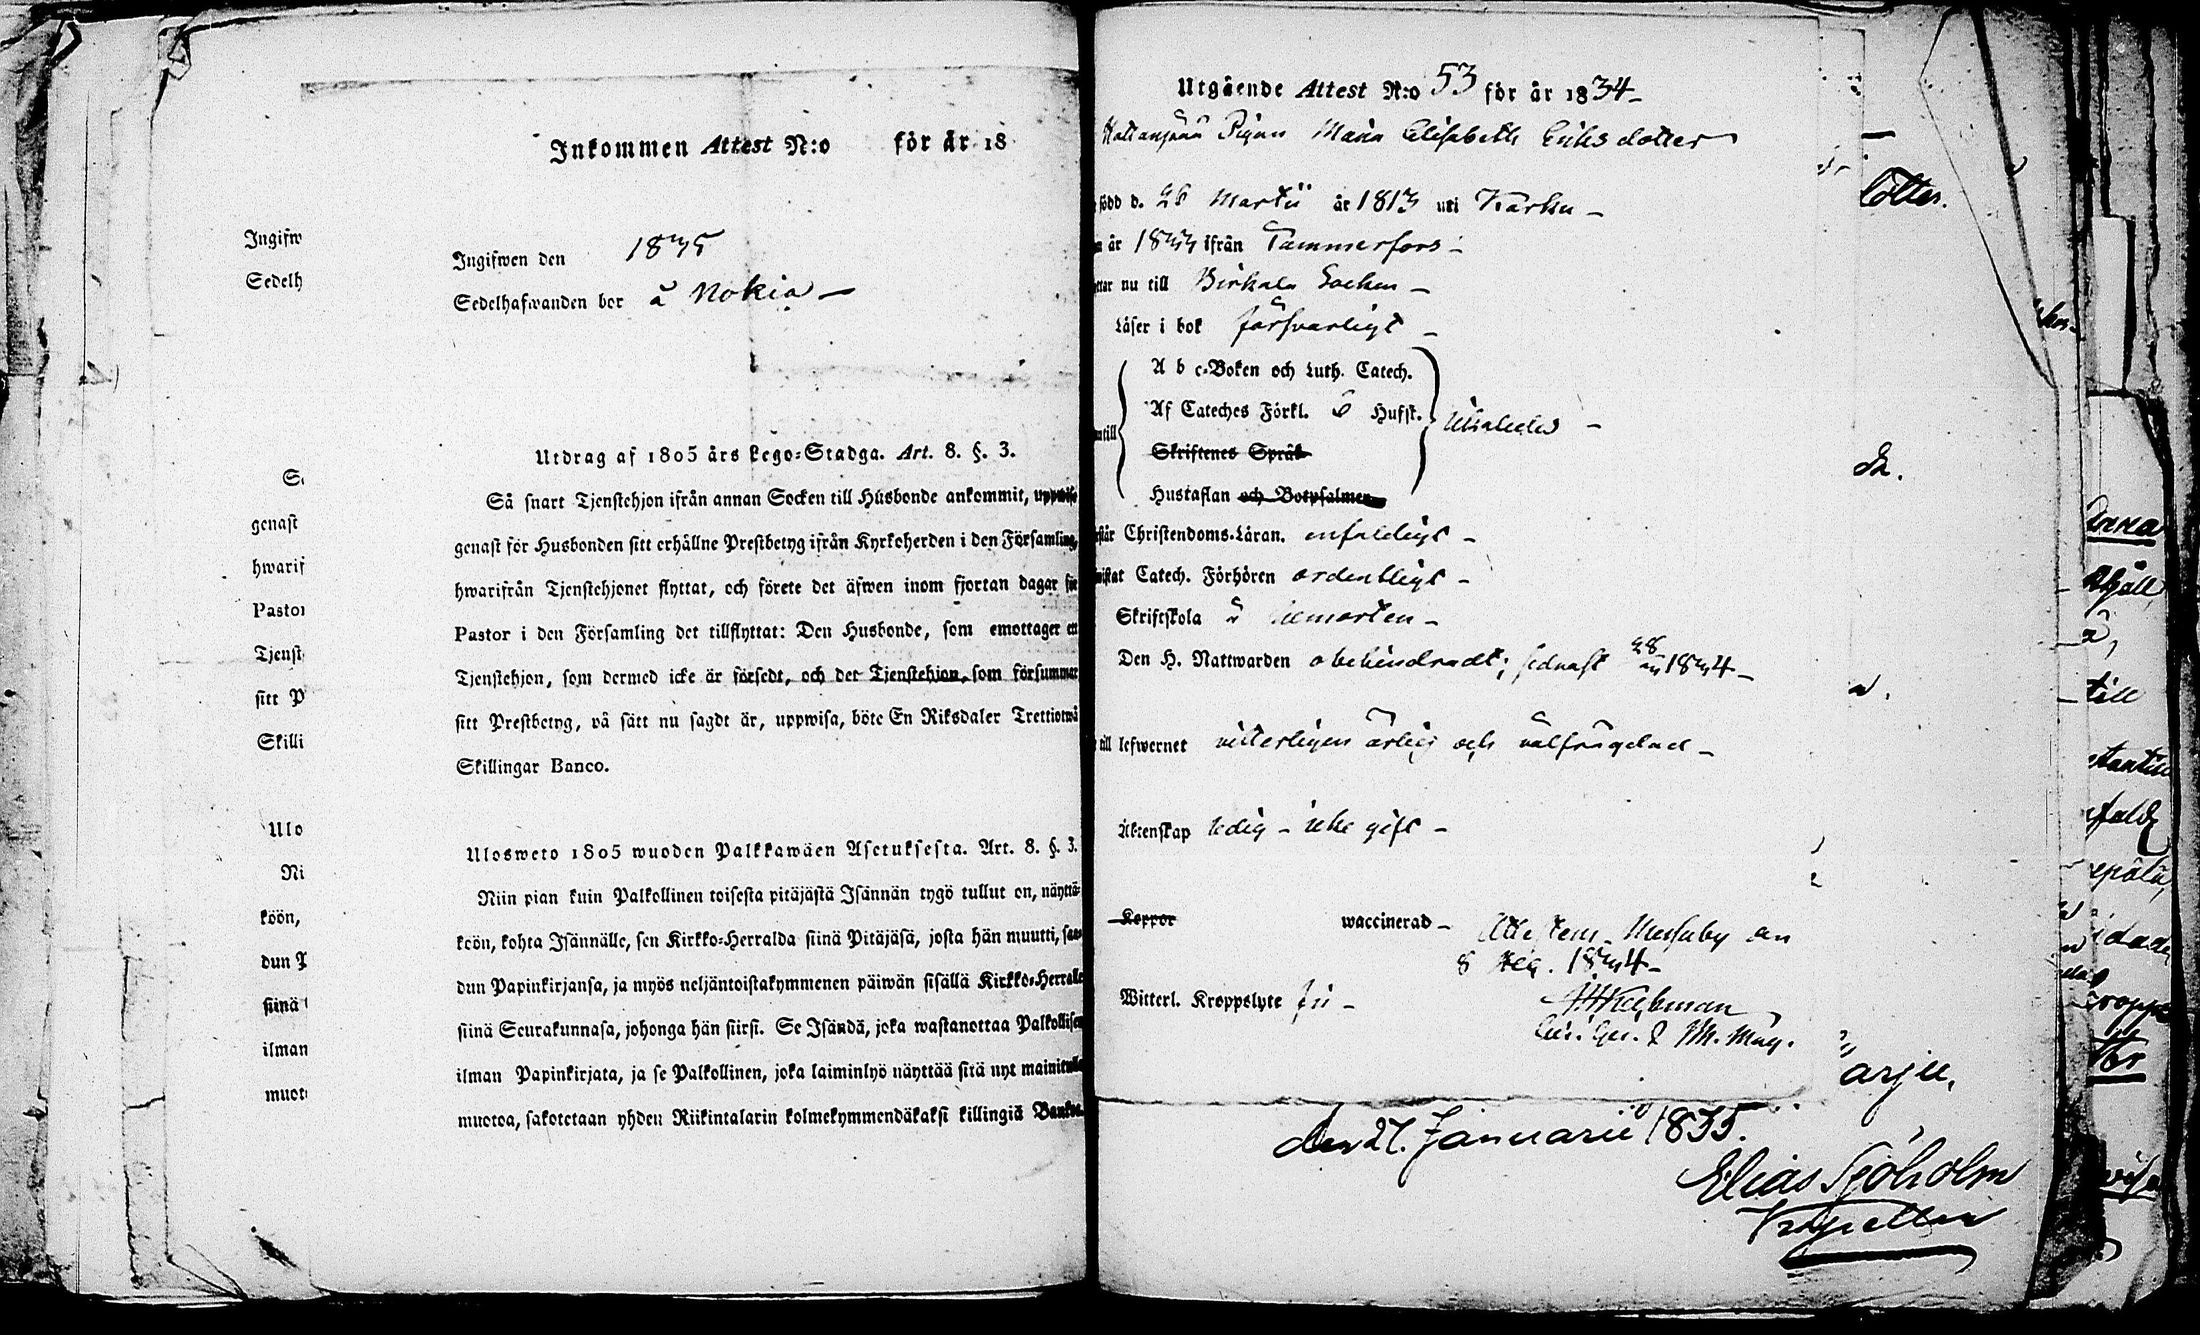 Inkommen Attest N:o för år 18
Ingifwen den 1835
Sedelhafwanden bor å Nokia –
Utdrag af 1805 års Lego-Stadga. Art. 8. §. 3.
Så snart Tjenstehjon ifrån annan Socken till Husbonde ankommit, uppwise
genast för Husbonden sitt erhållne Prestbetyg ifrån Kyrkoherden i den Församling,
hwarifrån Tjenstehjonet flyttat, och förete det äfwen inom fjortan dagar för
Pastor i den Församling det tillflyttat: Den Husbonde, som emottager ett
Tjenstehjon, som dermed icke är försedt, och det Tjenstehjon, som försummar
sitt Prestbetyg, på sätt nu sagdt är, uppwisa, böte En Riksdaler Trettiotwå
Skillingar Banco.
Ulosweto 1805 wuoden Palkkawäen Asetuksesta. Art. 8. §. 3.
Niin pian kuin Palkollinen toisesta pitäjästä Isännän tygö tullut on, näyttä-
köön, kohta Isännälle, sen Kirkko-Herralda siinä Pitäjäsä, josta hän muutti, saa-
dun Papinkirjansa, ja myös neljäntoistakymmenen päiwän sisällä Kirkko-Herralle
siinä Seurakunnasa, johonga hän siirsi. Se Isändä, joka wastanottaa Palkollisen
ilman Papinkirjata, ja se Palkollinen, joka laiminlyö näyttää sitä nyt mainitulla
muotoa, sakotetaan yhden Riikintalarin kolmekymmendäkaksi killingiä Bankos.
Ingifw
Sedelh
genast
hwarif
Pastor
Tjenst
sitt P
Skilli
Ulo
Ni
köön,
dun P
siinä
ilman
muoto
Utgående Attest N:o 53 för år 1834–
Pigan Maria Elisabeth Eriksdotter
född d. 26 Martii år 1813 uti Karku –
år 1833 ifrån Tammerfors –
nu till Birkala Socken –
Läser i bok försvarligt –
A b c-Boken och Luth. Catech.
Af Cateches Förkl. 6 Hufst.
Skriftenes Språk
Hustaflan och Botpsalmer
Christendoms-Läran. enfaldigt –
Catech. Förhören ordentligt –
Skriftskola å
Den H. Nattwarden obehindradt; sednast 28 1834–
till lefwernet witterligen ärlig och välfrägdad –
Äktenskap ledig – icke gift –
Koppor waccinerad – Messuby den
8 1834–
Witterl. Kroppslyte fri –
den 27. Januarii 1835.
Elias Sjöholm